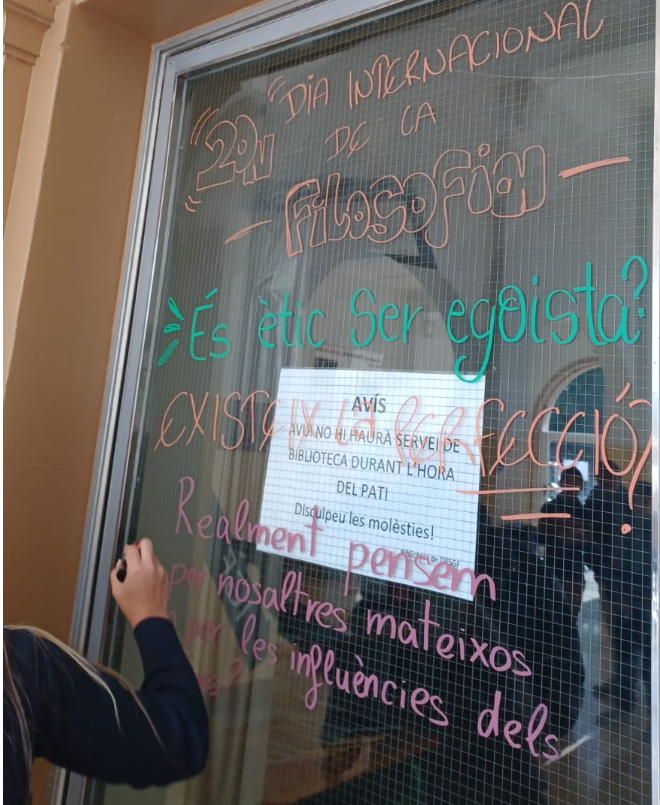 "DIA INTERNACIONAL
20N DE LA
- FiLOSOFiA -
És ètic Ser egoista?
EXISTEIX LA PERFECCIÓ?
AVÍS
AVUI NO HI HAURÀ SERVEI DE
BIBLIOTECA DURANT L'HORA
DEL PATI
Disculpeu les molèsties!
Realment pensem
per nosaltres mateixos
o per les influències dels